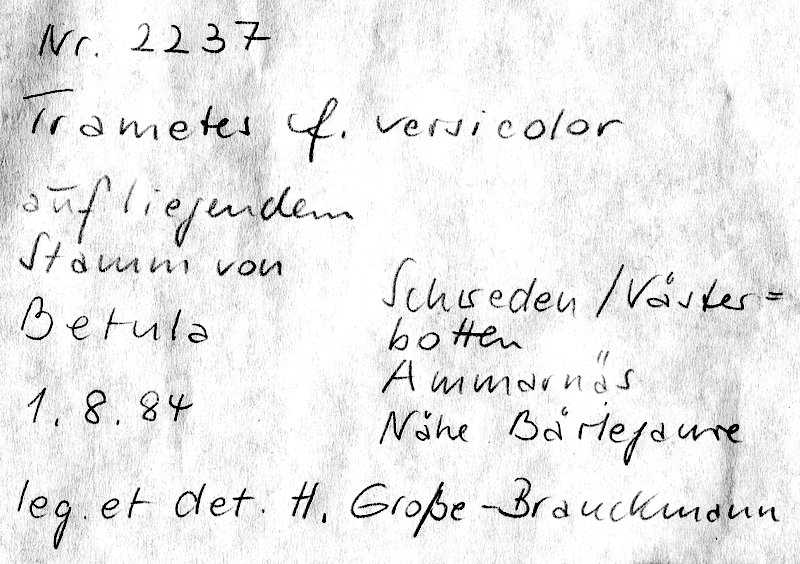 Nr. 2237
Trametes cf. versicolor
auf liegendem
Stamm von
Betula
1. 8. 84
Schweden / Väster=
botten
Ammarnäs
Nähe
leg. et det. H. Große-Brauckmann